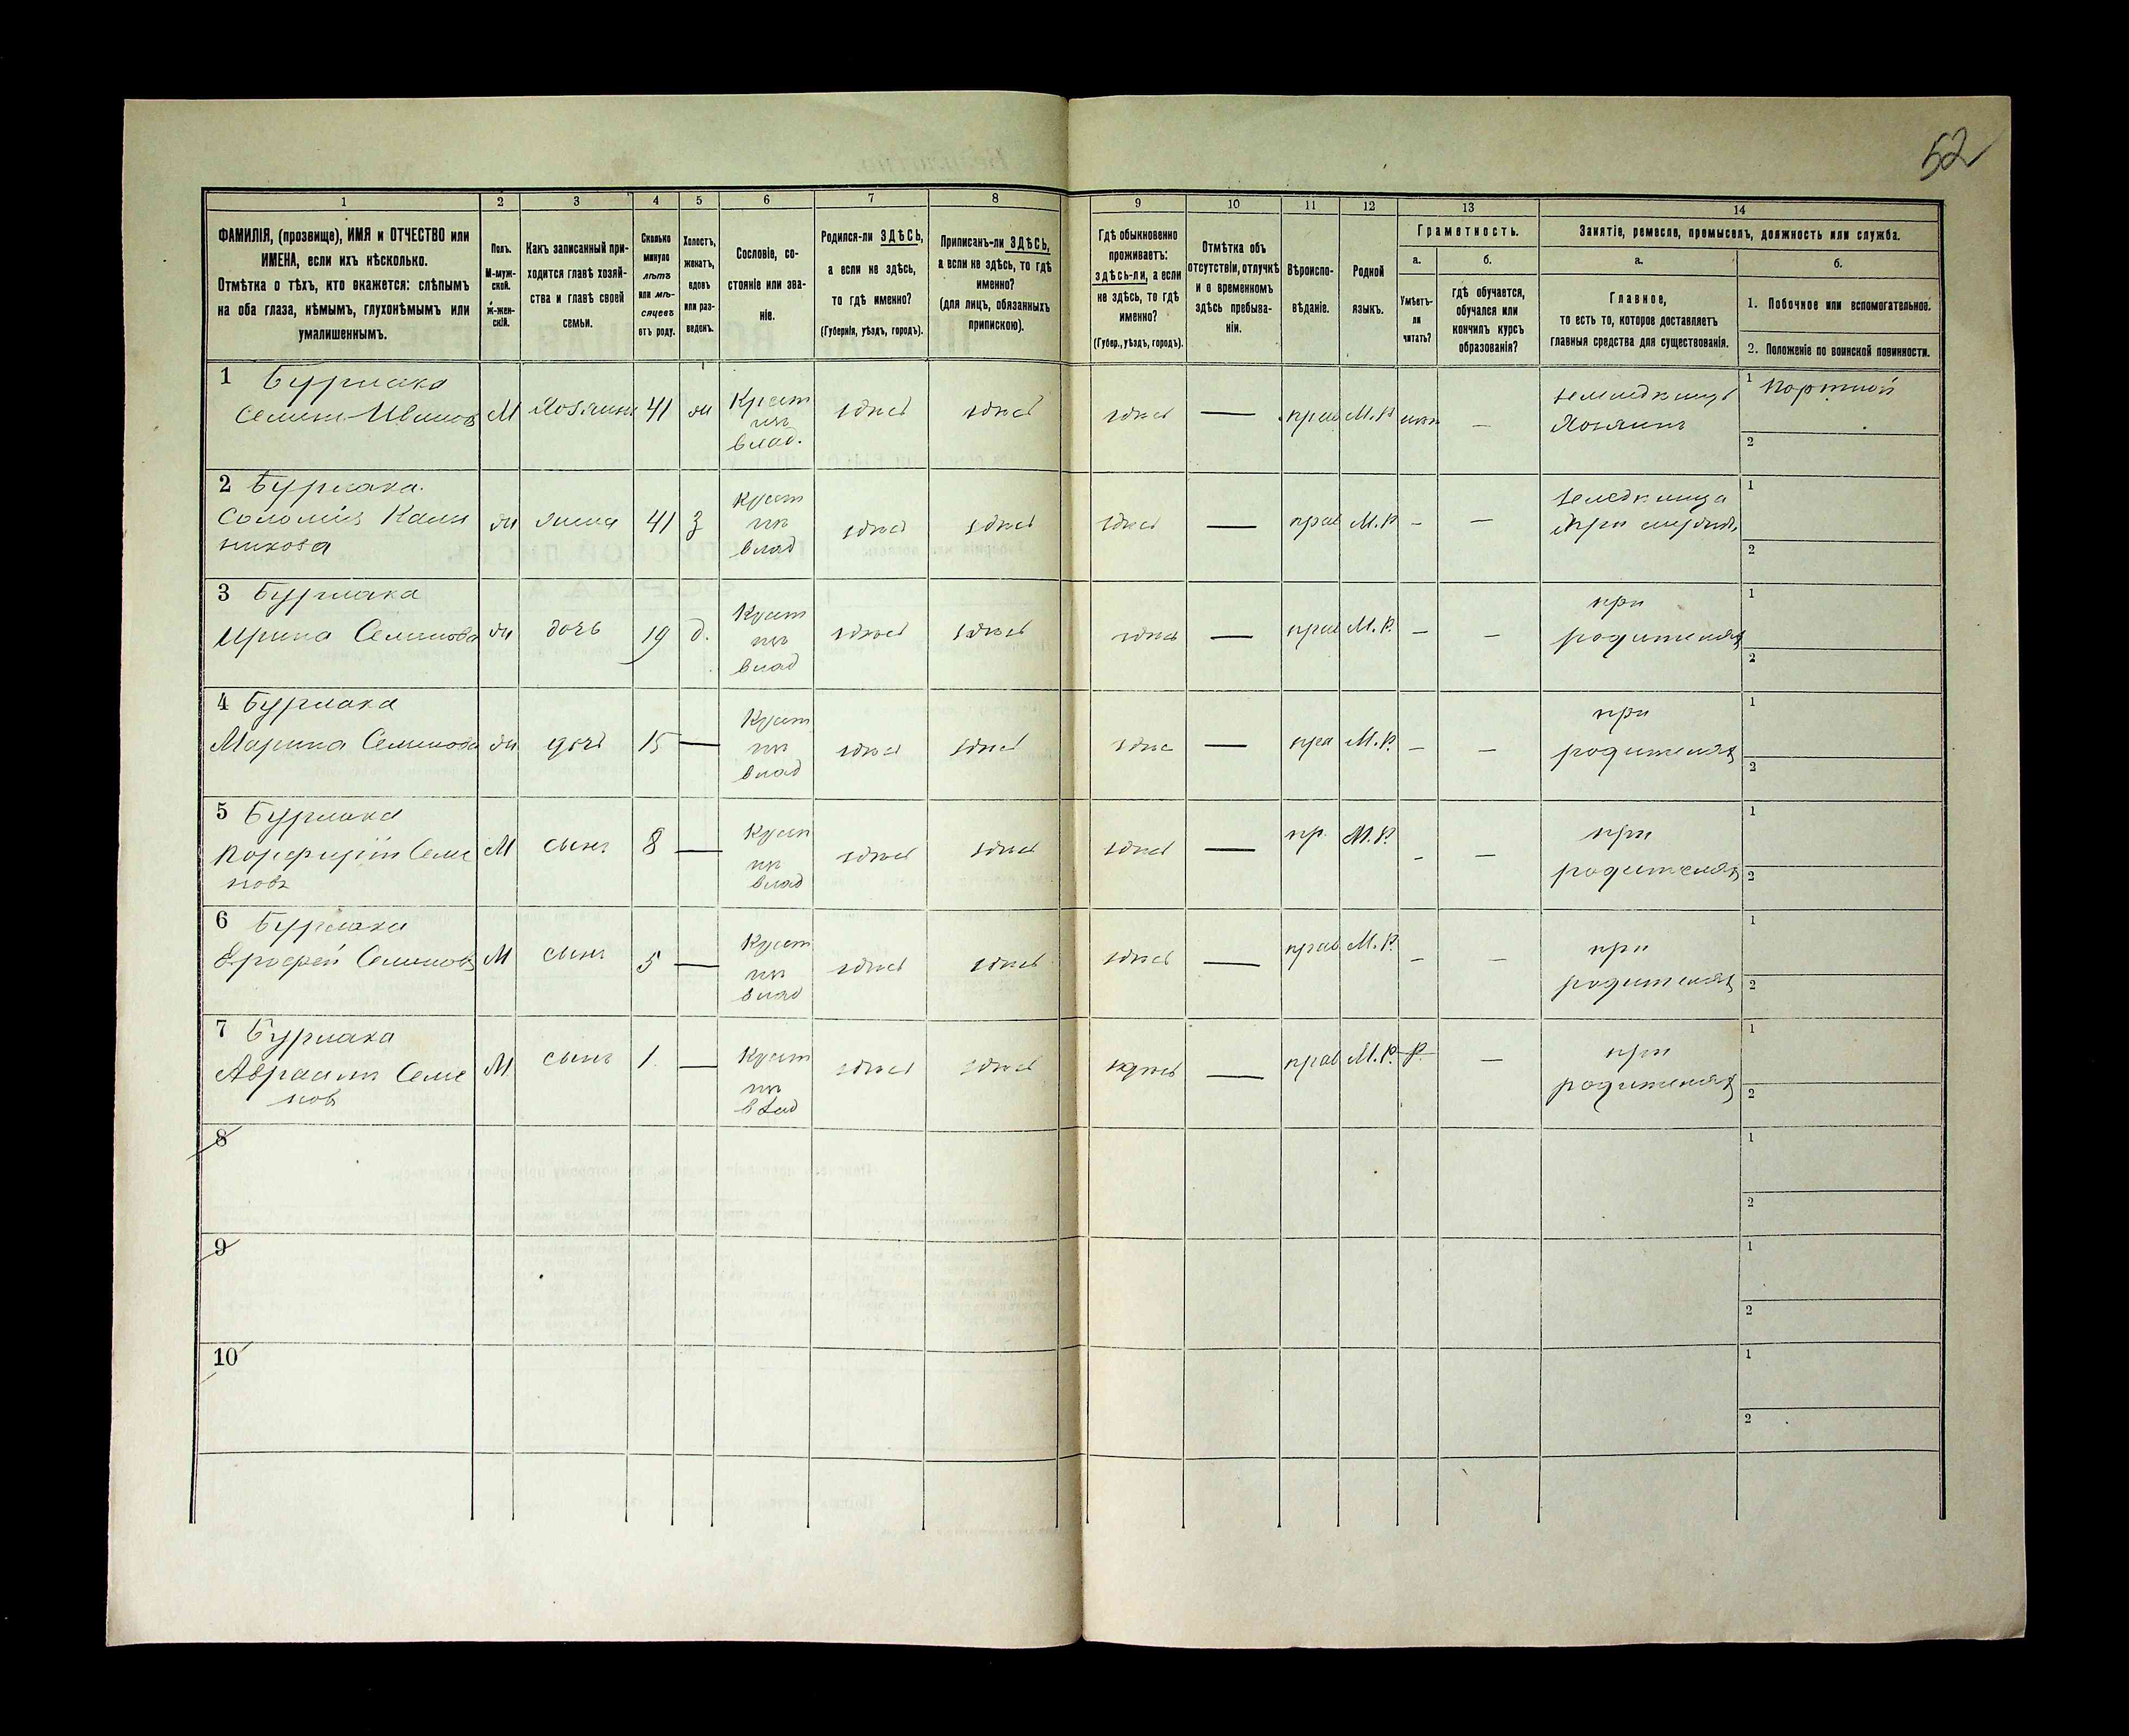 52
1
2
3
4
5
6
7
8
9
10
11
12
13
14
ФАМИЛІЯ, (прозвище), ИМЯ и ОТЧЕСТВО или
ИМЕНА, если ихъ нѣсколько.
Отмѣтка о тѣхъ, кто окажется: слѣпымъ
на оба глаза, нѣмымъ, глухонѣмымъ или
умалишеннымъ.
Полъ.
М-муж-
ской.
Ж-жен-
скій.
Какъ записанный при-
ходится главѣ хозяй-
ства и главѣ своей
семьи.
Сколько
минуло
лѣтъ
или мѣ-
сяцевъ
отъ роду.
Холостъ,
женатъ,
вдовъ
или раз-
веденъ.
Сословіе, со-
стояніе или зва-
ніе.
Родился-ли ЗДѢСЬ,
а если не здѣсь,
то гдѣ именно?
(Губернія, уѣздъ, городъ).
Приписанъ-ли ЗДѢСЬ,
а если не здѣсь, то гдѣ
именно?
(для лицъ, обязанныхъ
припискою).
Гдѣ обыкновенно
проживаетъ:
здѣсь-ли, а если
не здѣсь, то гдѣ
именно?
(Губер., уѣздъ, городъ).
Отмѣтка объ
отсутствіи, отлучкѣ
и о временномъ
здѣсь пребыва-
ніи.
Вѣроиспо-
вѣданіе.
Родной
языкъ.
Грамотность.
а.
Умѣетъ-
ли
читать?
б.
гдѣ обучается,
обучался или
кончилъ курсъ
образованія?
Занятіе, ремесло, промыселъ, должность или служба.
а.
Главное,
то есть то, которое доставляетъ
главныя средства для существованія.
б.
1. Побочное или вспомогательное.
2. Положеніе по воинской повинности.
1 Бурлака
Семенъ Ивановъ М Хозяинъ 41 ж Крест
изъ
влад. здѣсь здѣсь здѣсь — прав М.Р. — Хозяинъ
1 Портной
2
2 Бурлака
Соломія Калин
никова ж жена 41 З Крест
изъ
влад здѣсь здѣсь здѣсь — прав М.Р. — —
1
2
3 Бурлака
Ирина Семенова ж дочь 19 д. Крест
изъ
влад здѣсь здѣсь здѣсь — прав М.Р. — — при
родителяхъ
1
2
4 Бурлака
Марина Семенова ж дочь 15 — Крест
изъ
влад здѣсь здѣсь здѣс — пра М.Р. — — при
родителяхъ
1
2
5 Бурлака
Порфирій Семе
новъ М сынъ 8 — Крест
изъ
влад здѣсь здѣсь здѣсь — пр. М.Р. — — при
родителяхъ
1
2
6 Бурлака
Ерофей Семеновъ М сынъ 5 — Крест
изъ
влад здѣсь здѣсь здѣсь — прав М.Р. — — при
родителяхъ
1
2
7 Бурлака
Авраамъ Семе
новъ М сынъ 1 — Крест
изъ
влад здѣсь здѣсь здѣсь — прав М.Р. Р. — при
родителяхъ
1
2
8
1
2
9
1
2
10
1
2